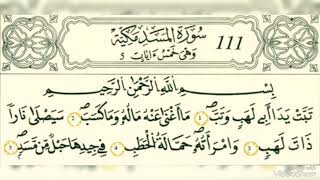 سُورَةُ الْمَسَدِ مَكِّيَّةٌ
وَهِيَ خَمْسُ ءَايَاتٍ ٥
111
بِسْمِ اللَّهِ الرَّحْمَٰنِ الرَّحِيمِ
تَبَّتْ يَدَا أَبِي لَهَبٍ وَتَبَّ ١ مَا أَغْنَىٰ عَنْهُ مَالُهُ وَمَا كَسَبَ ٢ سَيَصْلَىٰ نَاراً
ذَاتَ لَهَبٍ ٣ وَامْرَأَتُهُ حَمَّالَةَ الْحَطَبِ ٤ فِي جِيدِهَا حَبْلٌ مِّن مَّسَدٍ ٥